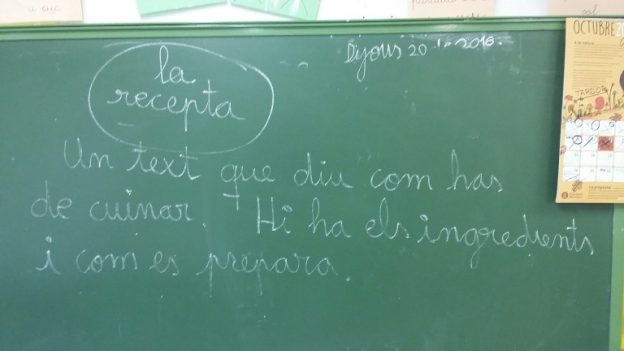 Dijous 20 - 10 - 2016.
la
recepta
Un text que diu com has
de cuinar. Hi ha els ingredients
i com es prepara.
OCTUBRE
TARDOR